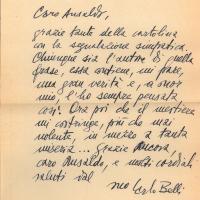 Caro Ansaldo,
grazie tante della cartolina
con la segnalazione simpatica.
Chiunque sia l'autore di quella
frase, essa contiene, mi pare,
una gran verità e, a onor
mio, l'ho sempre pensata
così. Ora poi che il mestiere
mi costringe, più che mai
nolente, in mezzo a tanta
miseria... Grazie ancora,
caro Ansaldo, e molti cordiali
saluti dal
suo Carlo Belli